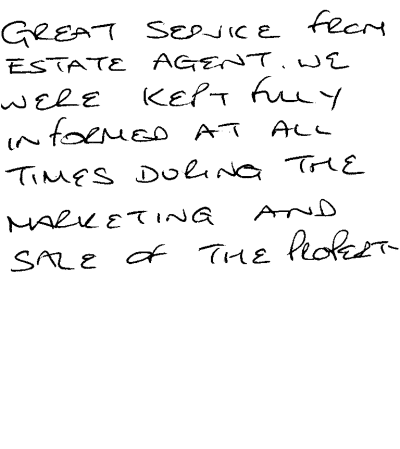 GREAT SERVICE from
ESTATE AGENT. WE
WERE KEPT fully
INfORMED AT ALL
TIMES DURING THE
MARKETING AND
SALE Of THE PROPERT